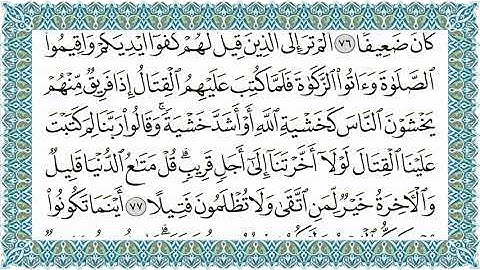 كَانَ ضَعِيفًا ٧٦ أَلَمْ تَرَ إِلَى الَّذِينَ قِيلَ لَهُمْ كُفُّوٓا۟ أَيْدِيَكُمْ وَأَقِيمُوا۟
الصَّلَوٰةَ وَءَاتُوا۟ الزَّكَوٰةَ فَلَمَّا كُتِبَ عَلَيْهِمُ الْقِتَالُ إِذَا فَرِيقٌ مِّنْهُمْ
يَخْشَوْنَ النَّاسَ كَخَشْيَةِ اللَّهِ أَوْ أَشَدَّ خَشْيَةً ۚ وَقَالُوا۟ رَبَّنَا لِمَ كَتَبْتَ
عَلَيْنَا الْقِتَالَ لَوْلَآ أَخَّرْتَنَآ إِلَىٰٓ أَجَلٍ قَرِيبٍ ۗ قُلْ مَتَٰعُ الدُّنْيَا قَلِيلٌ
وَالْءَاخِرَةُ خَيْرٌ لِّمَنِ اتَّقَىٰ وَلَا تُظْلَمُونَ فَتِيلًا ٧٧ أَيْنَمَا تَكُونُوا۟